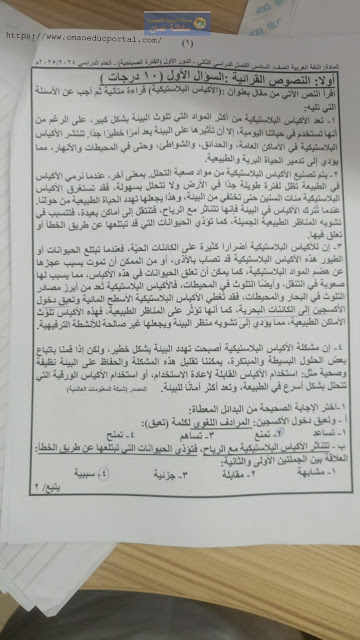 سلطنة عُمان
https://www.omaneducportal.com
(١)
المادة: اللغة العربية الصف: السادس الفصل الدراسي الثاني - الدور الأول (الفترة الصباحية) - العام الدراسي ٢٠٢٤/٢٠٢٥م
أولا: النصوص القرائية :السؤال الأول (١٠ درجات )
اقرأ النص الآتي من مقال بعنوان :(الأكياس البلاستيكية) قراءة متأنية ثم أجب عن الأسئلة
التي تليه:
١- تعد الأكياس البلاستيكية من أكثر المواد التي تلوث البيئة بشكل كبير، على الرغم من
أنها تستخدم في حياتنا اليومية، إلا أن تأثيرها على البيئة يعد أمرًا خطيرًا جدًا. تنتشر الأكياس
البلاستيكية في الأماكن العامة، والحدائق، والشواطئ، وحتى في المحيطات والأنهار، مما
يؤدي إلى تدمير الحياة البرية والطبيعية.
٢- يتم تصنيع الأكياس البلاستيكية من مواد صعبة التحلل، بمعنى آخر، عندما نرمي الأكياس
في الطبيعة تظل لفترة طويلة جدًا في الأرض ولا تتحلل بسهولة. فقد تستغرق الأكياس
البلاستيكية مئات السنين حتى تختفي من البيئة، وهذا يجعلها تهدد الحياة الطبيعية من حولنا.
عندما تترك الأكياس في البيئة فإنها تتناثر مع الرياح، فتنتقل إلى أماكن بعيدة، فتتسبب في
تشويه المناظر الطبيعية الجميلة، كما تؤذي الحيوانات التي قد تبتلعها عن طريق الخطأ أو
تعلق فيها.
٣- إن للأكياس البلاستيكية أضرارا كثيرة على الكائنات الحيّة، فعندما تبتلع الحيوانات أو
الطيور هذه الأكياس البلاستيكية قد تصاب بالأذى، أو من الممكن أن تموت بسبب عجزها
عن هضم المواد البلاستيكية، كما يمكن أن تعلق الحيوانات في هذه الأكياس، مما يسبب لها
صعوبة في التنقل، وأيضًا التلوث في المحيطات، فالأكياس البلاستيكية تُعد من أبرز مصادر
التلوث في البحار والمحيطات، فقد تُغطي الأكياس البلاستيكية الأسطح المائية وتعيق دخول
الأكسجين إلى الكائنات البحرية، كما أنها توثر على المناظر الطبيعية، فهذه الأكياس تلوّث
الأماكن الطبيعية، مما يؤدي إلى تشويه منظر البيئة ويجعلها غير صالحة للأنشطة الترفيهية.
٤- إن مشكلة الأكياس البلاستيكية أصبحت تهدد البيئة بشكل خطير، ولكن إذا قمنا باتباع
بعض الحلول البسيطة والمبتكرة، يمكننا تقليل هذه المشكلة والحفاظ على البيئة نظيفة
وصحية مثل: استخدام الأكياس القابلة لإعادة الاستخدام، أو استخدام الأكياس الورقية التي
تتحلل بشكل أسرع في الطبيعة، وتعد أكثر أمانًا للبيئة. المصدر (شبكة المعلومات العالمية)
١-اختر الإجابة الصحيحة من البدائل المعطاة:
أ - وتعيق دخول الأكسجين: المرادف اللغوي لكلمة (تعيق):
١- تساعد ٢- تمنع ٣- تساهم ٤- تمنح
ب - تتناثر الأكياس البلاستيكية مع الرياح، فتؤذي الحيوانات التي تبتلعها عن طريق الخطأ:
العلاقة بين الجملتين الأولى والثانية:
١- مشابهة ٢- مقابلة ٣- جزئية ٤- سببية
يتبع/ ٢